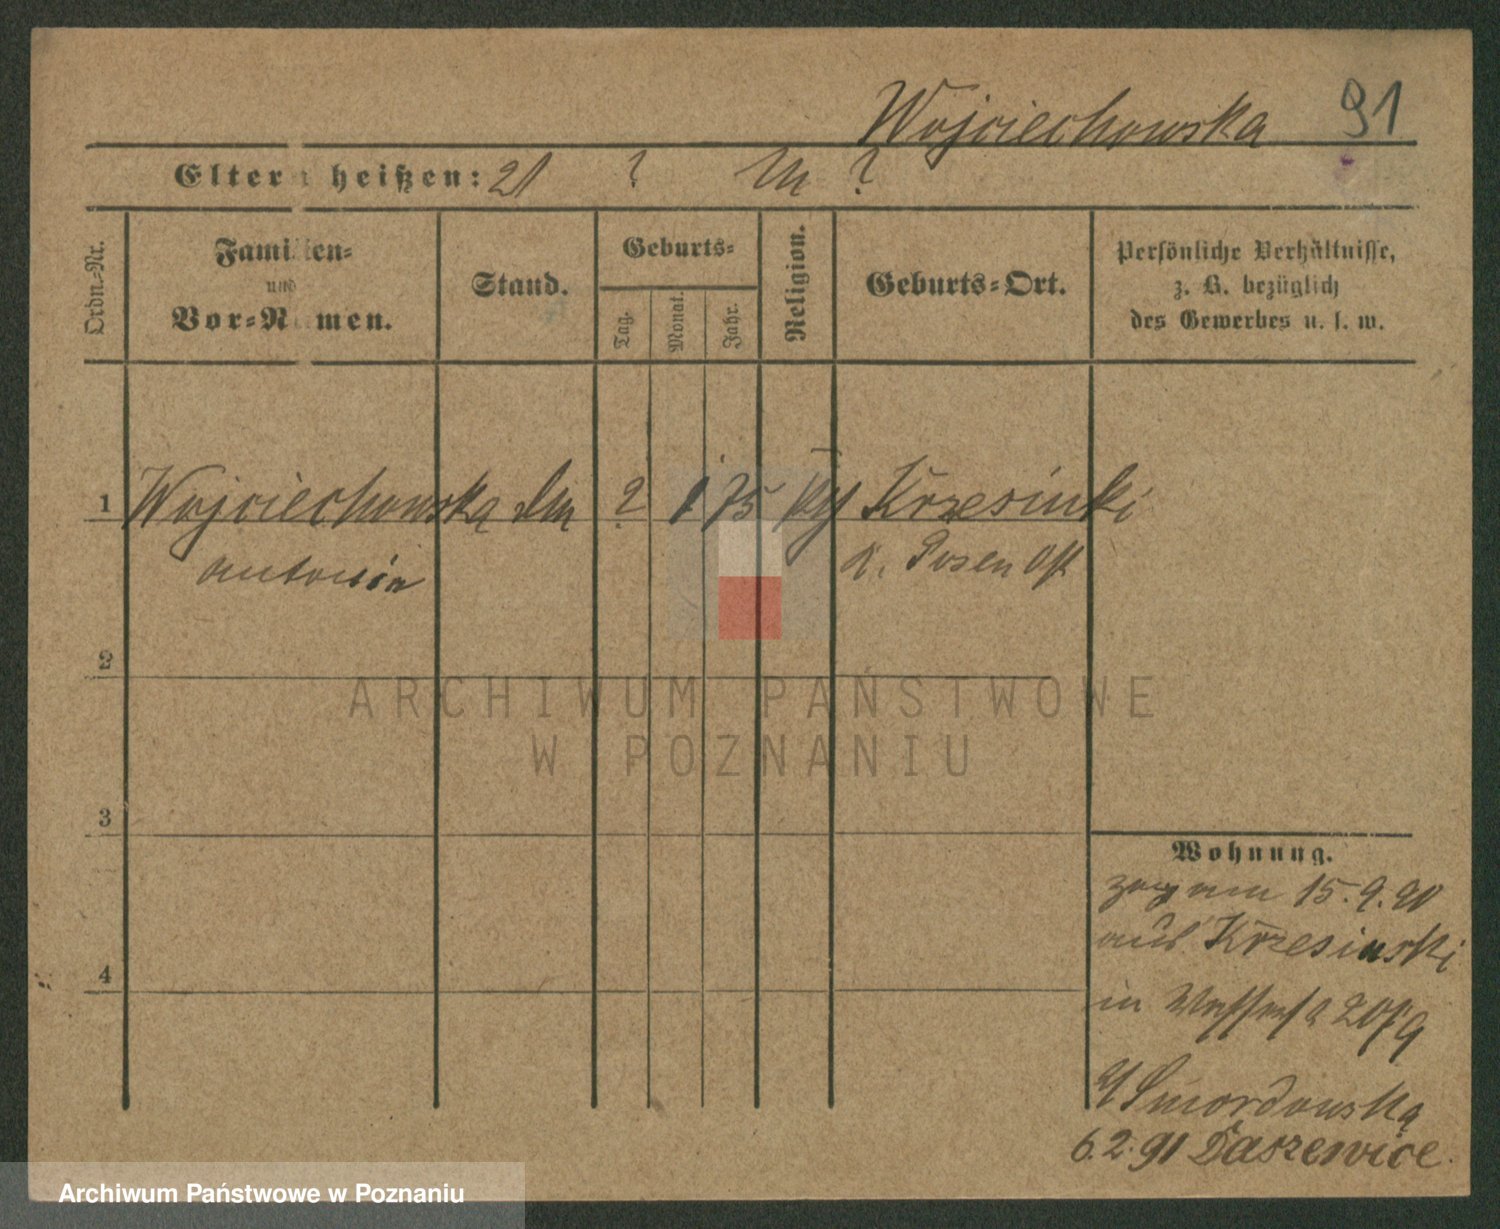 Wojciechowska 91
Eltern heißen: ? M ?
Ordn.-Nr.
Familien-
und
Vor-Namen.
Stand.
Geburts-
Tag.
Monat.
Jahr.
Religion.
Geburts-Ort.
Persönliche Verhältnisse,
z. B. bezüglich
des Gewerbes u. s. w.
1 Wojciechowska ? 1 75 Krzesinki
Antonia K. Posen Ost
2
3
4
Wohnung.
zog am 15.9.90
aus Krzesinski
in 20/9
Smordowska
6.2.91 Daszewice.
ARCHIWUM PAŃSTWOWE
W POZNANIU
Archiwum Państwowe w Poznaniu